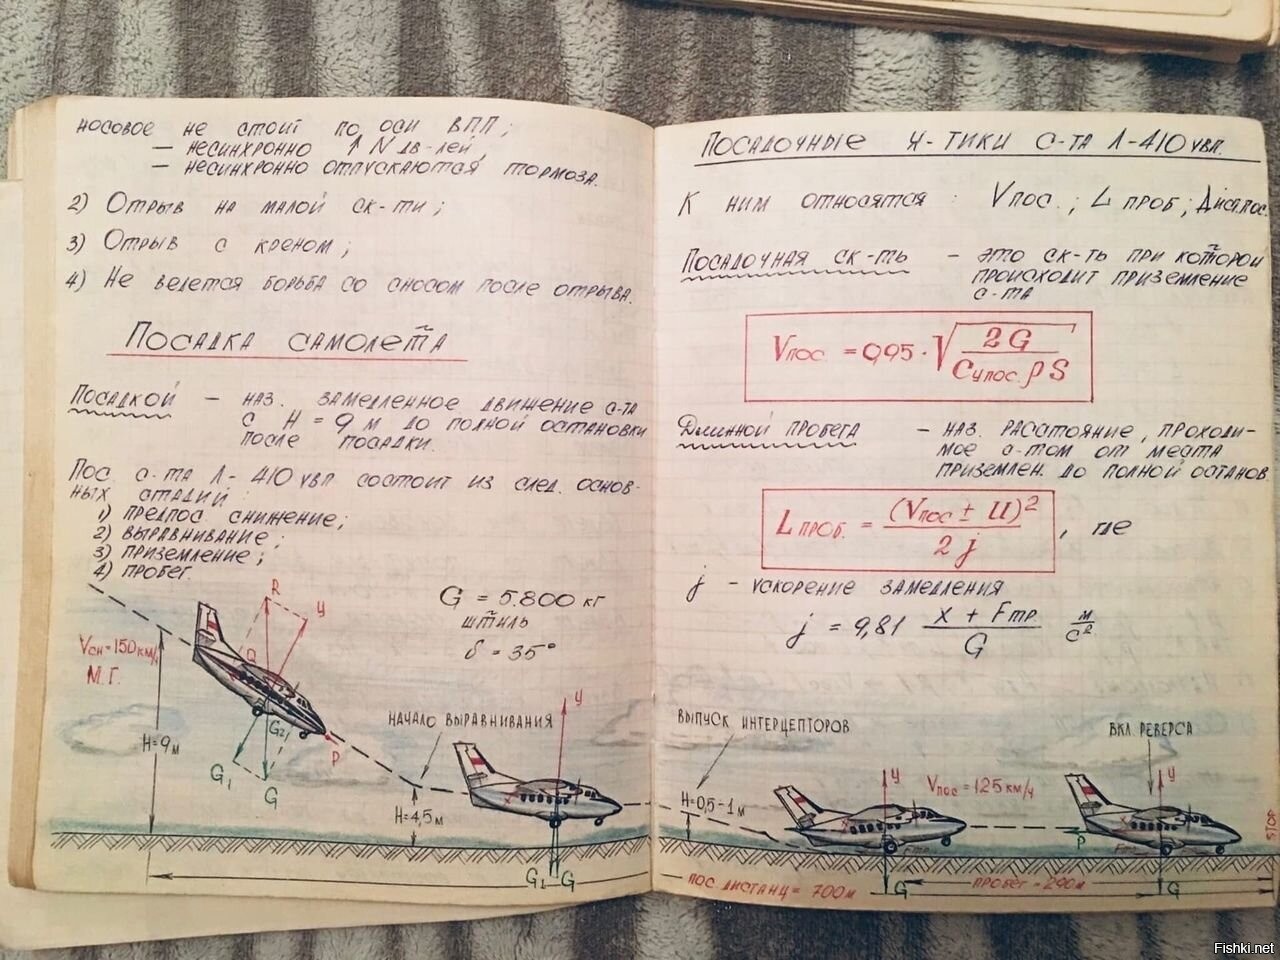 носовое не стоит по оси ВПП;
— несинхронно ↑ N дв-лей,
— несинхронно отпускаются тормоза.
2) Отрыв на малой ск-ти;
3) Отрыв с креном;
4) Не ведется борьба со сносом после отрыва.
Посадка самолета
Посадкой — наз. замедленное движение с-та
с H = 9 м до полной остановки
после посадки.
Пос. с-та Л-410 увп состоит из след. основ-
ных стадий:
1) предпос. снижение;
2) выравнивание;
3) приземление;
4) пробег.
G = 5.800 кг
штиль
δ = 35°
Vсн = 150 км/ч
М.Г.
R
У
Q
G2
P
G1
G
H=9м
начало выравнивания
H=4,5м
У
G1 G
Посадочные х-тики с-та Л-410 увп.
К ним относятся: Vпос.; L проб; Дист.пос.
Посадочная ск-ть — это ск-ть при которой
происходит приземление
с-та
Vпос = 0,95 · √ 2G / Cупос. ρ S
Длиной пробега — наз. расстояние, проходи-
мое с-том от места
приземлен. до полной останов.
L проб. = (Vпос ± U)² / 2j , где
j — ускорение замедления
j = 9,81 X + Fтр / G м/с²
выпуск интерцепторов
вкл. реверса
H=0,5-1м
У
Vпос = 125 км/ч
У
P
Fтр
Fтр
STOP
G
G
пос дистанц = 700м
пробег - 290м
Fishki.net